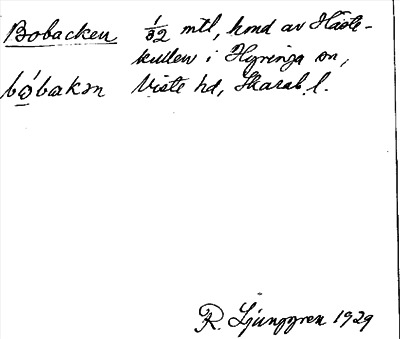 Bobacken 1/32 mtl, hmd av Häste-
kullen i Hyringa sn,
bó̲bakən Viste hd, Skarab. l.
R. Ljunggren 1929